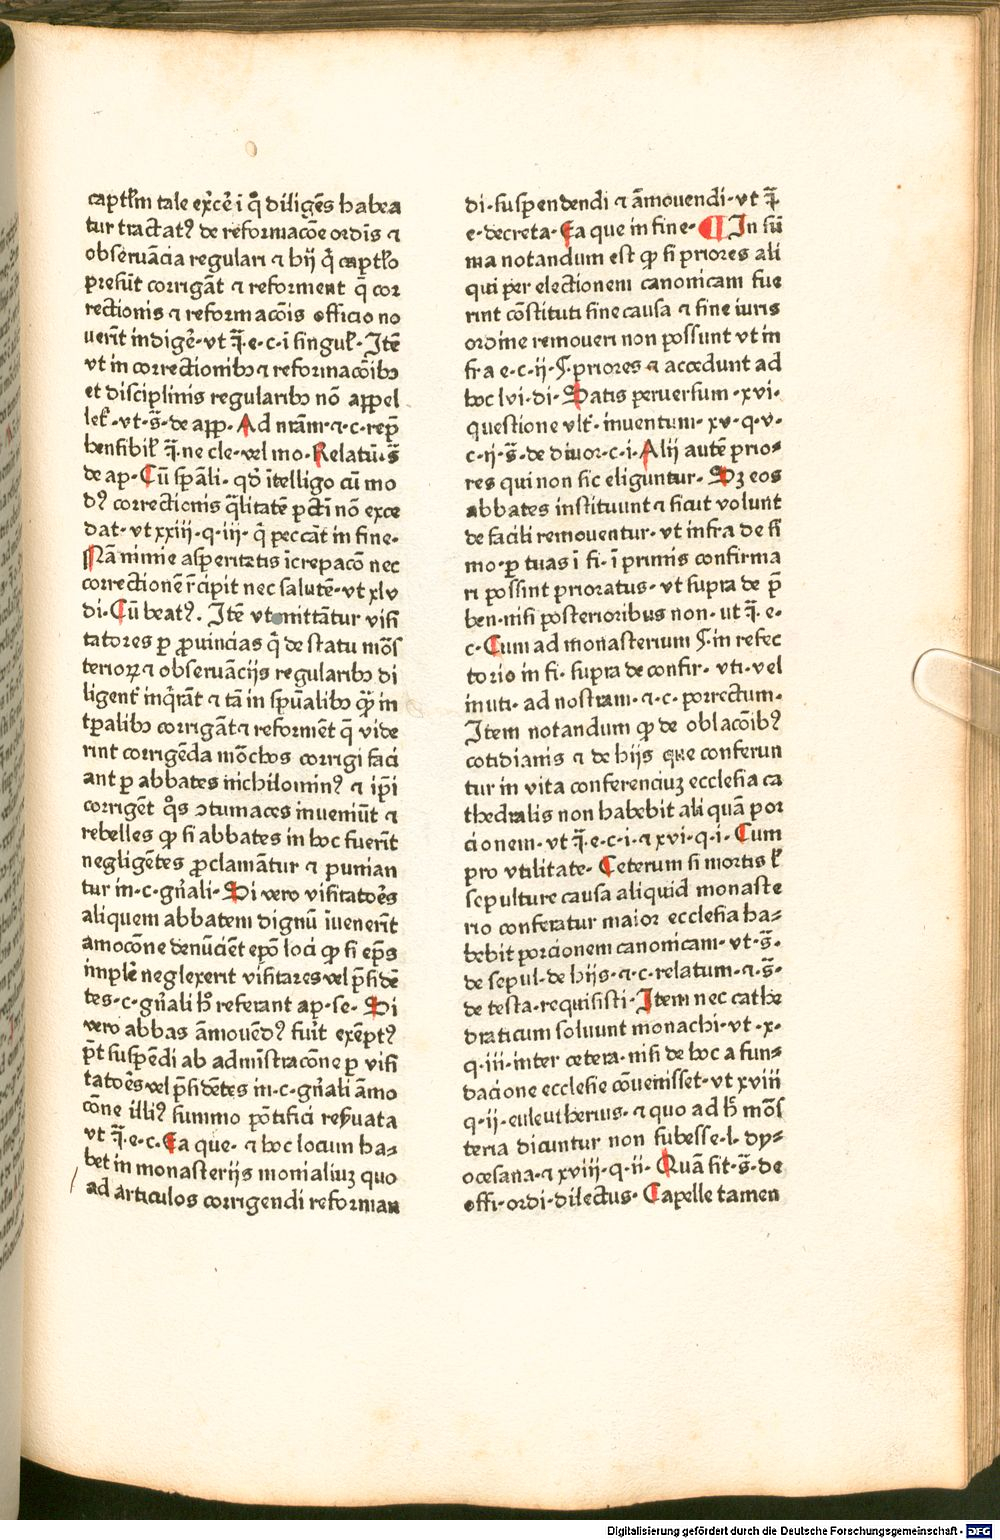 captl̄m tale exc̄ēi q̄ diligēs habea
tur tractatꝰ de reformacōe ordīs ⁊
obseruācia regulari ⁊ hij q̄ captl̄o
presūt corrigāt ⁊ reforment q̄ cor
rectionis ⁊ reformacōis officio no
uerīt indigē·vt q̄·e·c·i singul̄·Itē
vt in correctionibꝫ ⁊ reformacōibꝫ
et disciplinis regularibꝫ nō appel
let̄·vt·s̄·de app·Ad nr̄am·⁊·c·rep̄
hensibil̄ q̄·ne cle·vel mo·Relatū·s̄
de ap·Cū sp̄ali·qđ ītelligo cū mo
dꝰ correctionis q̄litatē ꝑcti nō exce
dat·vt xxiii·q·iii·q̄ peccāt in fine·
Nā nimie asperitatis īcrepacō nec
correctionē r̄cipit nec salutē·vt xlv
di·Cū beatꝰ. Itē vt mittātur visi
tatores ꝑ ꝓuincias q̄ de statu mōs
terioꝝ ⁊ obseruācijs regularibꝫ di
ligent̄ inq̄rāt ⁊ tā in sp̄ualibꝫ q̄ꝫ in
tꝑalibꝫ corrigāt⁊ reformēt q̄ vide
rint corrigēda mōchos corrigi faci
ant ꝑ abbates nichilominꝰ ⁊ ip̄i
corrigēt q̊s ↄtumaces inueniūt ⁊
rebelles ꝙ si abbates in hoc fuerīt
negligētes ꝓclamātur ⁊ punian
tur in·c·gn̄ali·Si vero visitatoēs
aliquem abbatem dignū īuenerīt
amocōne denūciēt epō loci ꝙ si ep̄s
implē neglexerit visitares vel p̄sidē
tes·c·gn̄ali h̄ referant ap·se·Si
vero abbas āmouēdꝰ fuīt exēptꝰ
p̄t suspēdi ab admīstracōne ꝑ visi
tatoēs vel p̄sidētes in·c·gn̄ali āmo
cōne illiꝰ summo pōtifici reẜuata
vt q̄·e·c·Ea que·⁊ hoc locum ha⸗
bet in monasterijs monialiuꝫ quo
ad articulos corrigendi reforman
di·suspendendi ⁊ āmouendi·vt q̄
e·decreta·Ea que in fine·¶ In sū
ma notandum est ꝙ si priores ali
qui per electionem canonicam fue
rint cōstituti sine causa ⁊ sine iuris
ordine remoueri non possunt vt in
fra e·c·ij·§·priores ⁊ accedunt ad
hoc lvi·di·Satis peruersum·xvi·
questione vlt̄·inuentum·xv·q·v·
c·ij·s̄·de diuor·c·i·Alij autē prio⸗
res qui non sic eliguntur·Sꝫ eos
abbates instituunt ⁊ sicut volunt
de facili remouentur·vt infra de si
mo·ꝑ tuas ī fi·ī primis confirma
ri possint prioratus·vt supra de p̄
ben·nisi posterioribus non·ut q̄·e·
c·Cum ad monasterium §·in refec
torio in fi·supra de confir·vti·vel
inuti·ad nostram·⁊·c·porrectum·
Item notandum ꝙ de oblacōibꝰ
cotidianis ⁊ de hijs que conferun
tur in vita conferenciuꝫ ecclesia ca
thedralis non habebit aliquā por
cionem·vt q̄·e·c·i·⁊ xvi·q·i·Cum
pro vtilitate·Ceterum si mortis l̄
sepulture causa aliquid monaste
rio conferatur maior ecclesia ha⸗
bebit porcionem canonicam·vt·s̄·
de sepul·de hijs·⁊·c·relatum·⁊·s̄·
de testa·requisisti·Item nec cathe
draticum soluunt monachi·vt·x·
q·iii·inter cetera·nisi de hoc a fun⸗
dacione ecclesie cōuenisset·vt xviii
q·ij·euleutherius·⁊ quo ad h̄ mōs
teria dicuntur non subesse·l·dy⸗
ocesana·⁊ xviij·q·ij·Quā sit·s̄·de
offi·ordi·dilectus·Capelle tamen
Digitalisierung gefördert durch die Deutsche Forschungsgemeinschaft - DFG